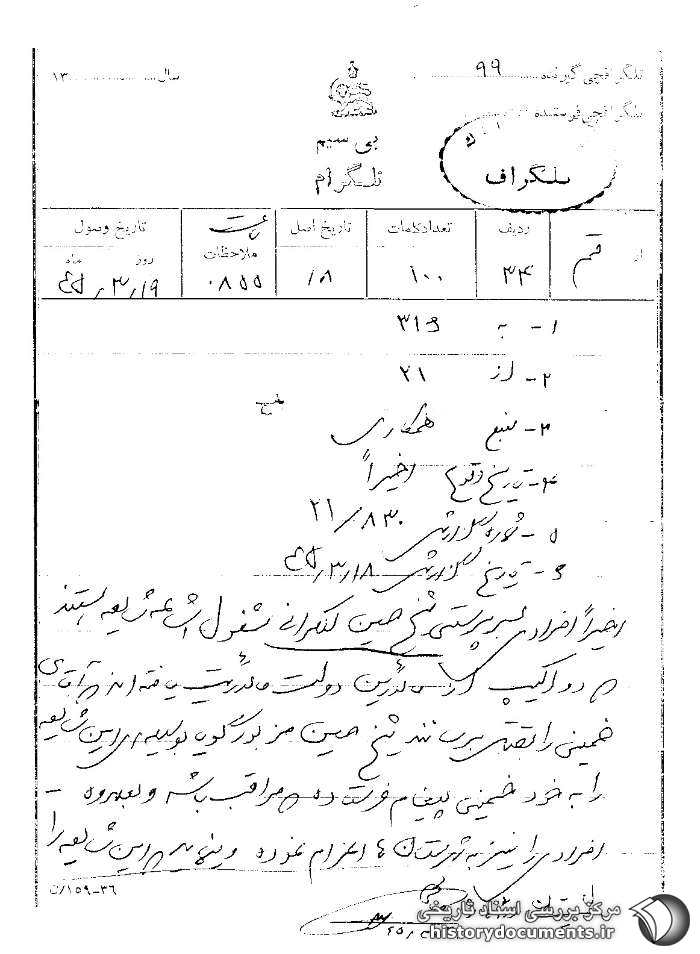 تلگرافچی گیرنده ۹۹ سال ۱۳
تلگرافچی فرستنده
تلگراف
بی سیم
تلگرام
از قم ردیف تعدادکلمات تاریخ اصل ملاحظات تاریخ وصول
روز ماه
۳۴ ۱۰۰ ۱۸ ۰۸۵۵ ۴۵٫۳٫۱۹
۱- به ۳۱۶
۲- از ۲۱
۳- منبع همکاری
۴- تاریخ وقوع اخیراً
۵- شماره گزارش ۲۱/۸۳۰
۶- تاریخ گزارش ۴۵٫۳٫۱۸
اخیراً افرادی بسرپرستی شیخ حسین لنکرانی مشغول اشاعه شایعه هستند
که دو اکیپ از مأمورین دولت مأموریت یافته اند که آقای
خمینی را بقتل برسانند شیخ حسین مزبور گویا بوسیله ای این شایعه
را به خود خمینی پیغام فرستاده که مراقب باشد و بعلاوه
افرادی را نیز به شهرستان ها اعزام نموده و که این شایعه را
۳۶-۱۵۹/ت
مرکز بررسی اسناد تاریخی
historydocuments.ir